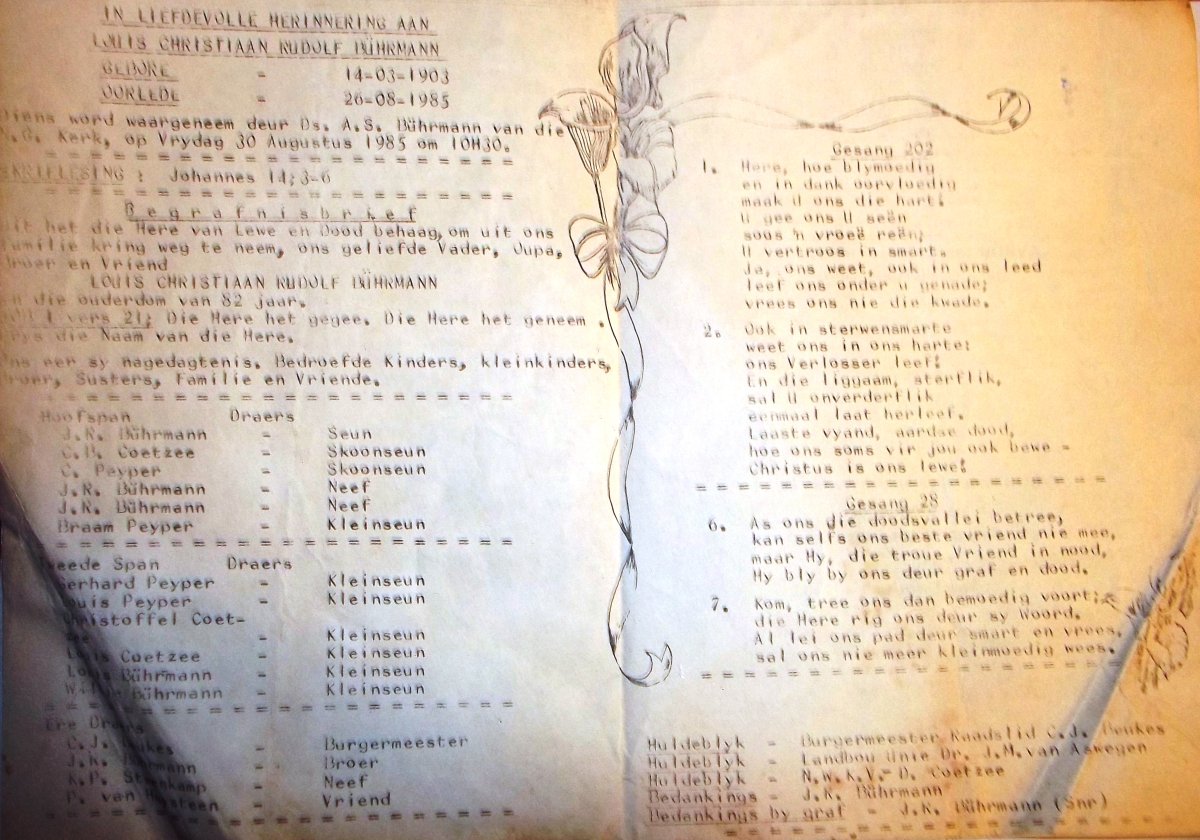 IN LIEFDEVOLLE HERINNERING AAN
LOUIS CHRISTIAAN RUDOLF BÜHRMANN
GEBORE - 14-03-1903
OORLEDE - 26-08-1985
Diens word waargeneem deur Ds. A.S. Bührmann van die
N.G. Kerk, op Vrydag 30 Augustus 1985 om 10H30.
SKRIFLESING : Johannes 14; 3-6
Begrafnisbrief
Dit het die Here van Lewe en Dood behaag, om uit ons
familie kring weg te neem, ons geliefde Vader, Oupa,
Broer en Vriend
LOUIS CHRISTIAAN RUDOLF BÜHRMANN
In die ouderdom van 82 jaar.
vers 21; Die Here het gegee. Die Here het geneem .
Prys die Naam van die Here.
Ons eer sy nagedagtenis. Bedroefde Kinders, kleinkinders,
Broer, Susters, Familie en Vriende.
Hoofspan Draers
J.R. Bührmann - Seun
C.B. Coetzee - Skoonseun
C. Peyper - Skoonseun
J.K. Bührmann - Neef
J.R. Bührmann - Neef
Braam Peyper - Kleinseun
Tweede Span Draers
Gerhard Peyper - Kleinseun
Louis Peyper - Kleinseun
Christoffel Coet-
zee - Kleinseun
Louis Coetzee - Kleinseun
Louis Bührmann - Kleinseun
Bührmann - Kleinseun
Ere Draers
C.J. Beukes - Burgermeester
J.K. Bührmann - Broer
K.P. Steenkamp - Neef
P. van - Vriend
Gesang 202
1. Here, hoe blymoedig
en in dank oorvloedig
maak U ons die hart!
U gee ons U seën
soos 'n vroeë reën;
U vertroos in smart.
Ja, ons weet, ook in ons leed
leef ons onder u genade;
vrees ons nie die kwade.
2. Ook in sterwensmarte
weet ons in ons harte:
ons Verlosser leef!
En die liggaam, sterflik,
sal U onverderflik
eenmaal laat herleef.
Laaste vyand, aardse dood,
hoe ons soms vir jou ook bewe -
Christus is ons lewe!
Gesang 28
6. As ons die doodsvallei betree,
kan selfs ons beste vriend nie mee,
maar Hy, die troue Vriend in nood,
Hy bly by ons deur graf en dood.
7. Kom, tree ons dan bemoedig voort;
die Here rig ons deur sy Woord.
Al lei ons pad deur smart en vrees,
sal ons nie meer kleinmoedig wees.
Huldeblyk - Burgermeester Raadslid C.J. Beukes
Huldeblyk - Landbou Unie Dr. J.M. van Aswegen
Huldeblyk - N.W.K.V- D. Coetzee
Bedankings - J.R. Bührmann
Bedankings by graf - J.K. Bührmann (Snr)